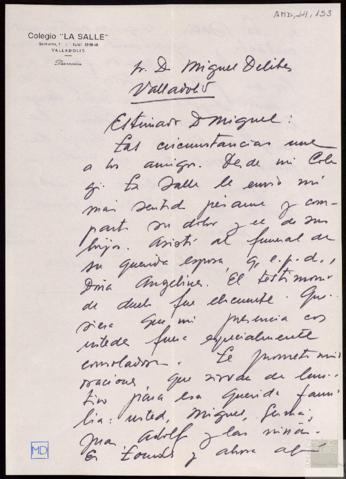 AMD,24,153
Colegio "LA SALLE"
VALLADOLID
Dirección
Sr. D. Miguel Delibes
Valladolid
Estimado D Miguel:
Las circunstancias une
a los amigos. Desde mi Cole
gi. La Salle le envío mi
más sentid pésame y com
parto su dolor y el de sus
hijos. Asistí al funeral de
su querida esposa, q.e.p.d.,
Dña Angelines. El testimoni
de duelo fue elocuente. Qui
siera que mi presencia con
ustedes fuera especialmente
consoladora. Le prometí mis
oraciones, que sirvan de
para esa querida fami
lia: usted, Miguel, Germá,
Juan, Adolf y las niñas.
En Lourdes y ahora
MD